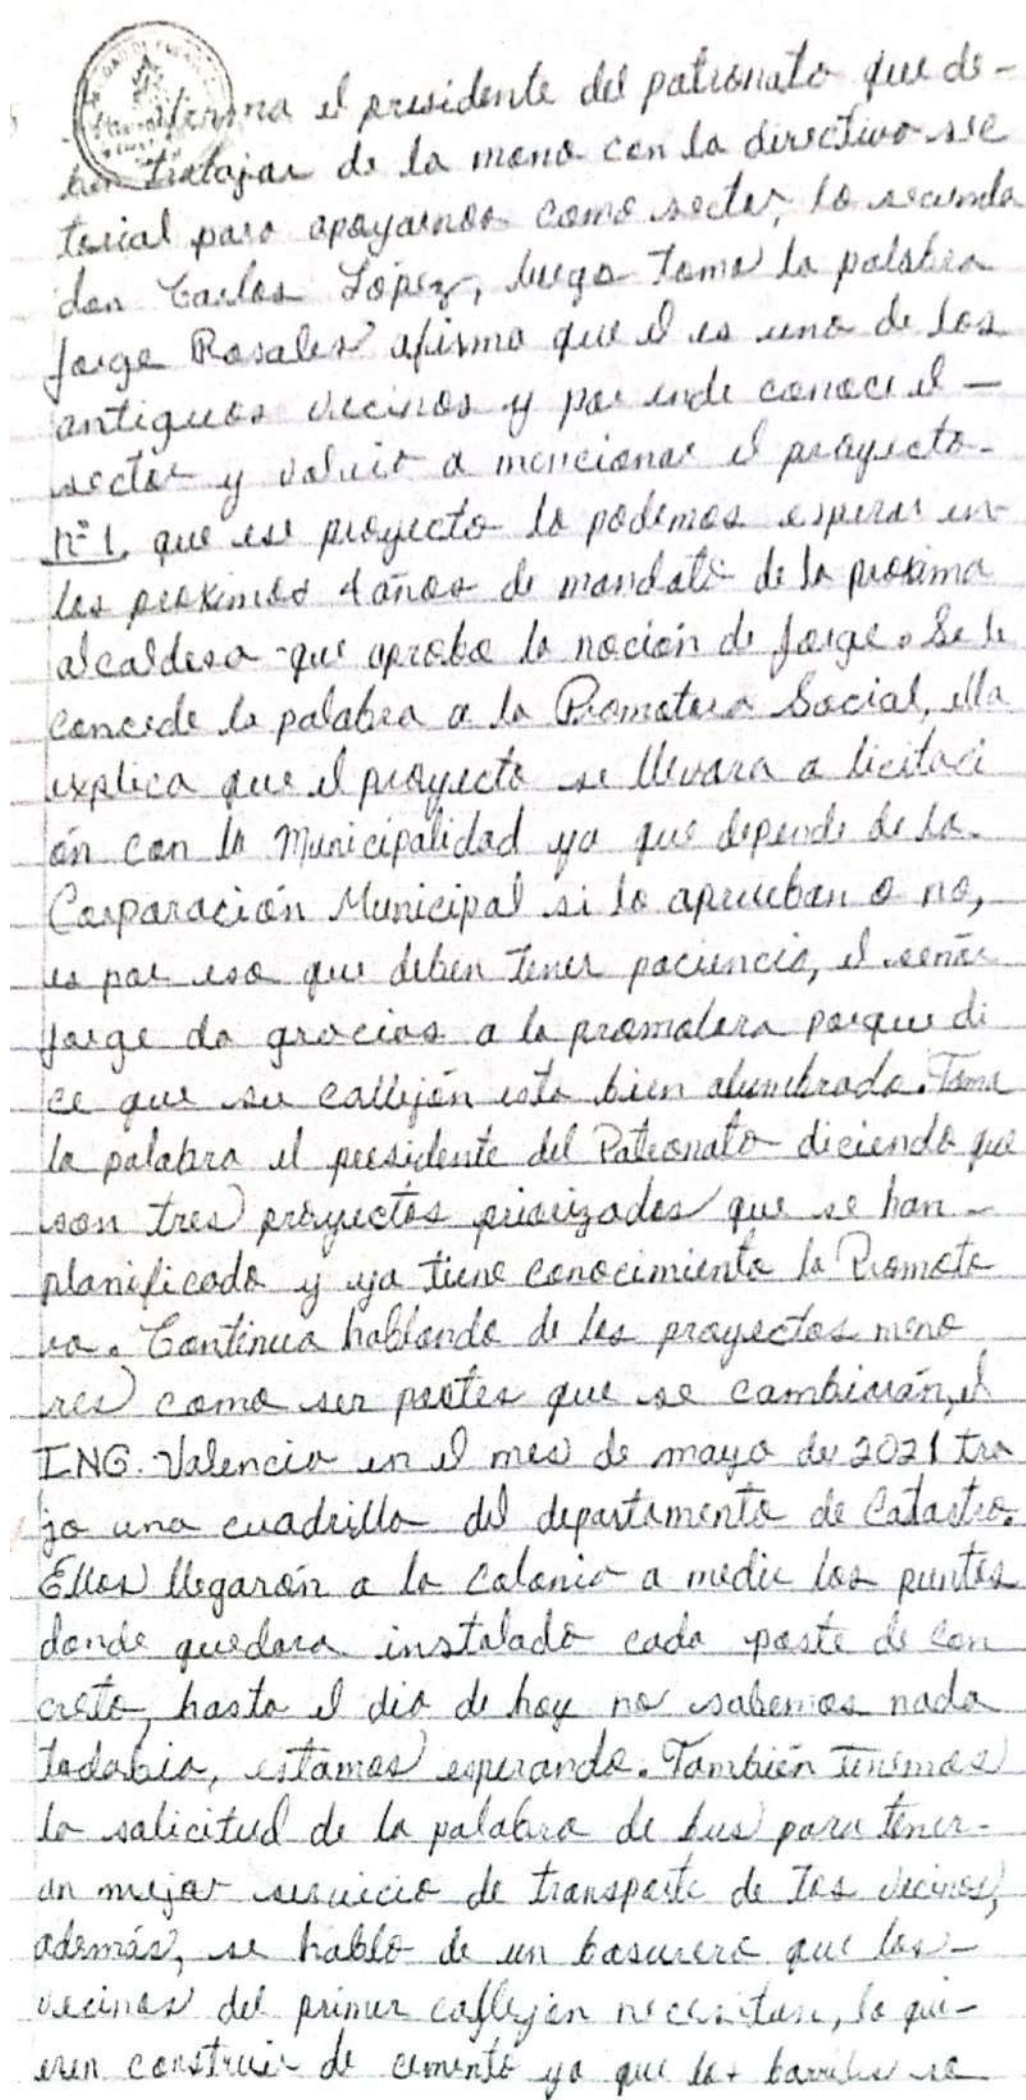 el presidente del patronato que de-
ben trabajar de la mano con la directiva sec
torial para apoyarnos como sector, lo secunda
don Carlos López, luego toma la palabra
Jorge Rosales afirma que el es uno de los
antiguos vecinos y por ende conoce el -
sector y volvio a mencionar el proyecto-
N° 1, que ese proyecto lo podemos esperar en
los proximos 4 años de mandato de la proxima
alcaldesa que aprobo la noción de Jorge. Se le
concede la palabra a la Promotora Social, ella
explica que el proyecto se llevara a licitaci
ón con la Municipalidad ya que depende de la
Corporación Municipal si lo aprueban o no,
es por eso que deben tener paciencia, el señor
Jorge da gracias a la promotora porque di
ce que su callejón esta bien alumbrado. Toma
la palabra el presidente del Patronato diciendo que
son tres proyectos priorizados que se han -
planificado y ya tiene conocimiento la Promoto
ra. Continua hablando de los proyectos meno
res como ser postes que se cambiarán, el
ING. Valencia en el mes de mayo de 2021 tra
jo una cuadrilla del departamento de Catastro.
Ellos llegarón a la colonia a medir los puntos
donde quedara instalado cada poste de con
creto, hasta el dia de hoy no sabemos nada
todabia, estamos esperando. También tenemos
la solicitud de la palabra de bus para tener-
un mejor servicio de transporte de los vecinos,
además, se hablo de un basurero que los -
vecinos del primer callejón necesitan, lo qui-
eren construir de cemento ya que los barriles se